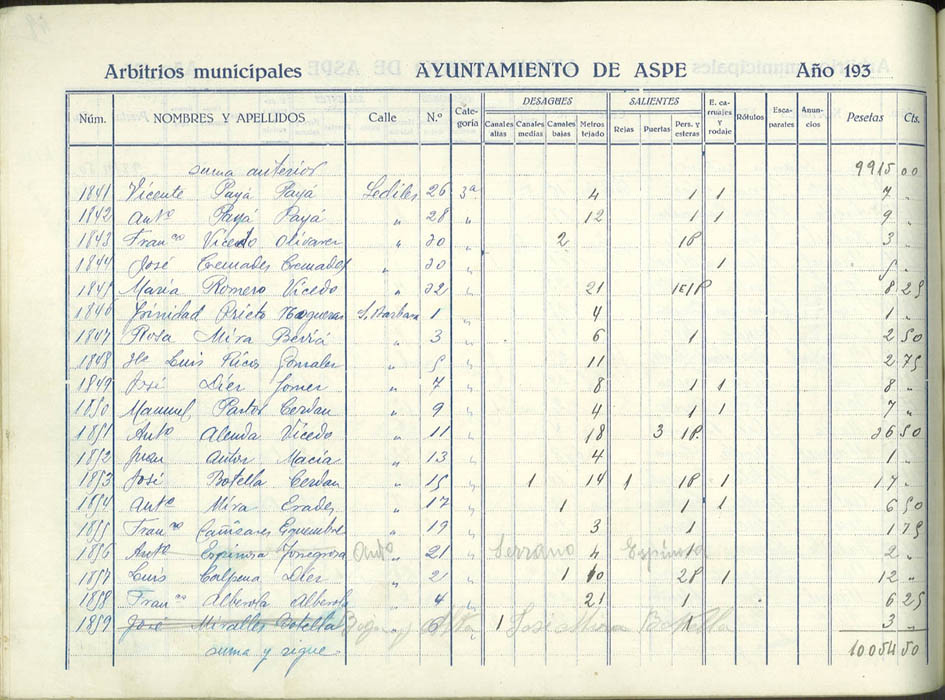 Arbitrios municipales AYUNTAMIENTO DE ASPE Año 193
Núm. NOMBRES Y APELLIDOS Calle N.º Categoría DESAGÜES Canales altas Canales medias Canales bajas Metros tejado SALIENTES Rejas Puertas Pers. y esteras E. carruajes y rodaje Rótulos Escaparates Anuncios Pesetas Cts.
suma anterior 9915 00
1841 Vicente Payá Payá Lediles 26 3ª 4 1 1 7 "
1842 Antº Payá Payá " 28 " 12 1 1 9 "
1843 Franco Vicedo Olivares " 30 " 2 1P 3 "
1844 José Cremades Cremades " 30 " 1 5 "
1845 María Romero Vicedo " 32 " 21 1P 8 25
1846 Trinidad Prieto Nogueras S. Barbara 1 " 4 1 "
1847 Rosa Mira Berná " 3 " 6 1 2 50
1848 Luis Ricos Gonzalez " 5 " 11 2 75
1849 José Díer Gomer " 7 " 8 1 1 8 "
1850 Manuel Pastor Cerdan " 9 " 4 1 1 7 "
1851 Antº Alenda Vicedo " 11 " 18 3 1P. 26 50
1852 Juan Autor Macia " 13 " 4 1 "
1853 José Botella Cerdan " 15 " 1 14 1 1P 1 17 "
1854 Antº Mira Erades " 17 " 1 1 1 6 50
1855 Franco Cañizares Esquembre " 19 " 3 1 1 75
1856 Antº Espinosa Antº " 21 " Serrano 4 Espinosa 1 2 "
1857 Luis Calpena Díer " 21 " 1 10 2P 1 12 "
1858 Franco Alberola Alberola " 4 " 21 1 6 25
1859 José Miralles Botella " 6 " 1 José Mira Botella 1 3 "
suma y sigue 10054 50